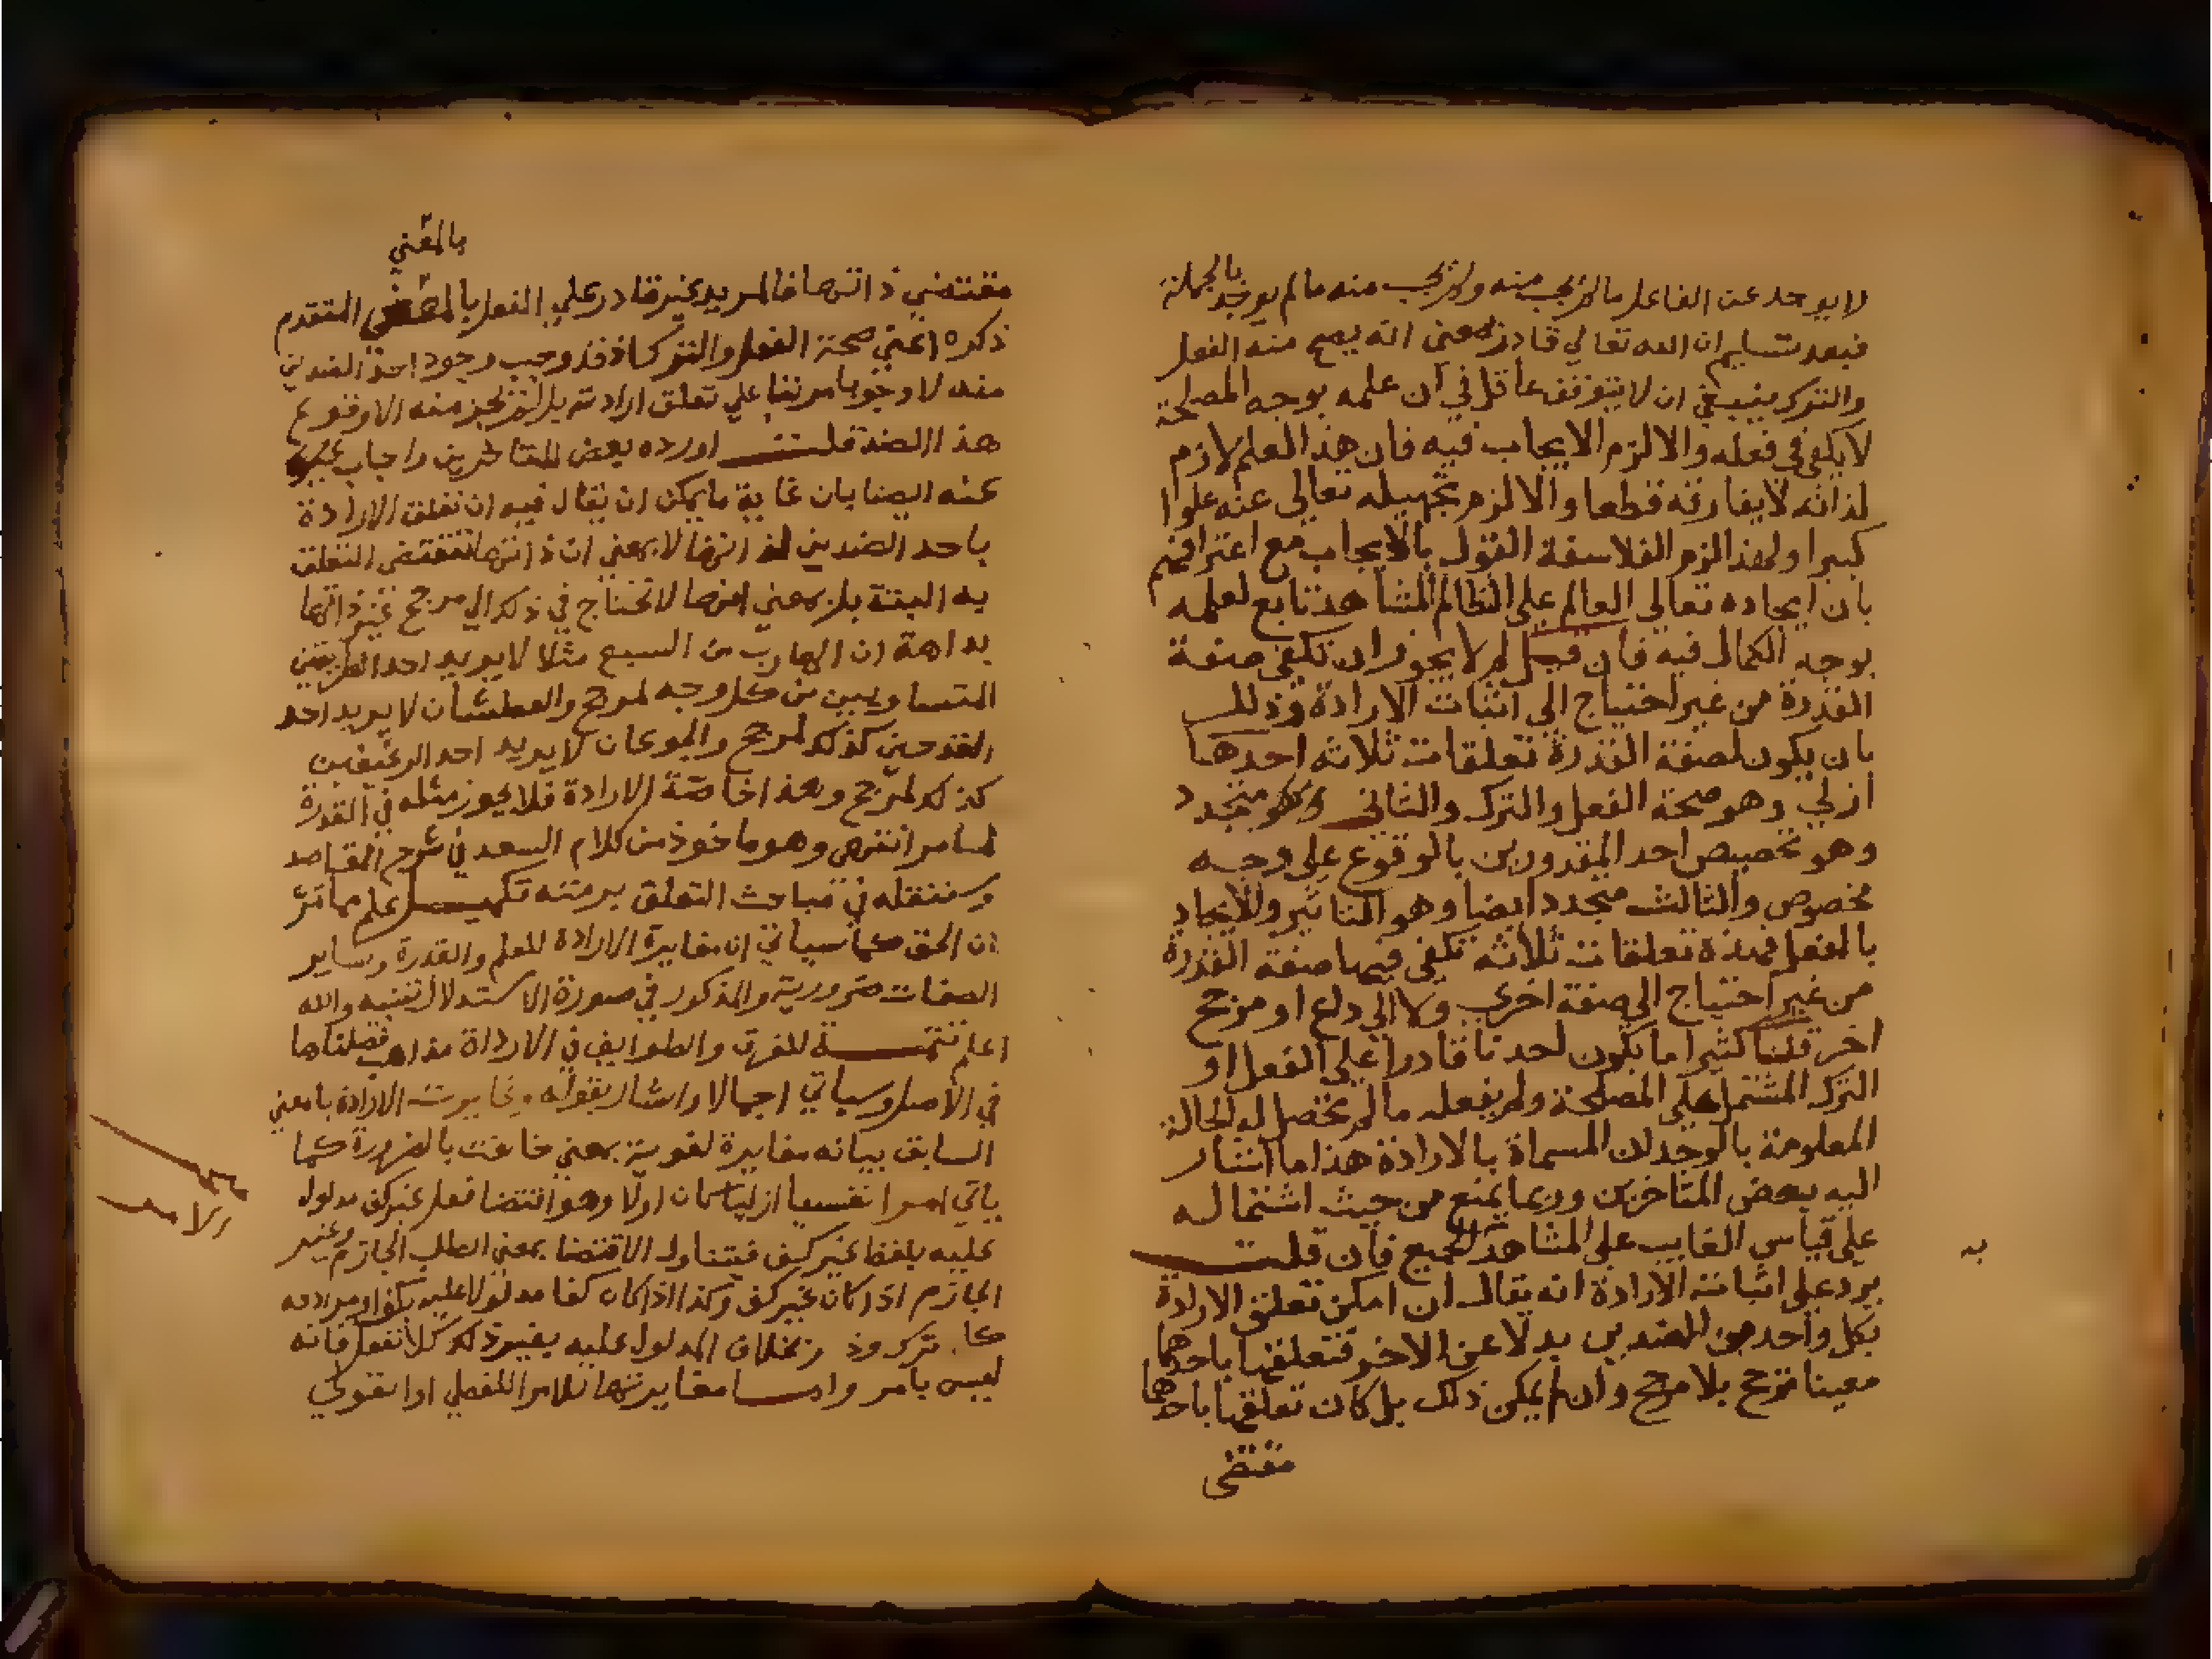 لا يوجد عن الفاعل ما لم يجب منه ولم يجب منه ما لم يوجد بالجملة
فبعد تسليم ان الله تعالي قادر بمعني انه يصح منه الفعل
والترك ينبغي ان لا يتوقف عاقل في ان علمه بوجه المصلحة
لا يكفي في فعله والا لزم الايجاب فيه فان هذا العلم لازم
لذاته لا يفارقه قطعا والا لزم تجهيله تعالى عنه علوا
كبيرا ولهذا لزم الفلاسفة القول بالايجاب مع اعترافهم
بان ايجاده تعالى العالم على النظام المشاهد تابع لعلمه
بوجه الكمال فيه فان قيل لم لا يجوز ان تكفي صفة
القدرة من غير احتياج الي اثبات الارادة وذلك
بان يكون لصفة القدرة تعلقات ثلاثه احدها
ازلي وهو صحة الفعل والترك والثاني وهو متجدد
وهو تخصيص احد المقدورين بالوقوع على وجه
مخصوص والثالث متجدد ايضا وهو التاثير والايجاد
بالفعل فهذه تعلقات ثلاثة تكفي فيها صفة القدرة
من غير احتياج الى صفة اخرى ولا الي داع او مرجح
اخر قلنا كثيرا ما يكون احدنا قادرا على الفعل او
الترك المشتمل على المصلحة ولم يفعله ما لم تحصل له الحالة
المعلومة بالوجدان المسماة بالارادة هذا ما اشار
اليه بعض المتاخرين وربما يمنع من حيث اشتماله
على قياس الغايب على المشاهد الجميع فان قلت
به
يرد على اثبات الارادة انه يقال ان امكن تعلق الارادة
بكل واحد من الضدين بدلا عن الاخر فتعلقها باحدهما
معينا ترجح بلا مرجح وان لم يمكن ذلك بل كان تعلقها باحدهما
مقتضى
بالمعني
مقتضي ذاتها فالمريد غير قادر علي الفعل المتقدم
ذكره اعني صحة الفعل والترك اذ قد وجب وجود احد الضدين
منه لا وجوبا مرتبا علي تعلق ارادته بل لم يجز منه الا وقوع
هذا الضد قلت اورده بعض المتاخرين واجاب
عنه ايضا بان غاية ما يمكن ان يقال فيه ان تعلق الارادة
باحد الضدين لذاتها لا بمعني ان ذاتها تقتضي التعلق
به البتة بل بمعني انها لا تحتاج في ذلك الي مرجح غير ذاتها
بداهة ان الهارب من السبع مثلا لا يريد احد الطريقين
المتساويين من كل وجه لمرجح والعطشان لا يريد احد
القدحين كذلك لمرجح والجوعان لا يريد احد الرغيفين
كذلك لمرجح وهذا خاصة الارادة فلا يجوز مثله في القدرة
لما مر انتهى وهو ماخوذ من كلام السعد في شرح المقاصد
وسننقله في مباحث التعلق برمته تكميل علم مما تقرر
ان الحق كما سياتي ان مغايرة الارادة للعلم والقدرة وساير
الصفات ضرورية والمذكور في صورة الاستدلال تنبيه والله
اعلم تتمة للفرق والطوايف في الارادة مذاهب فصلناها
في الاصل وسياتي اجمالا واشار بقوله وغايرت الارادة بالمعني
السابق بيانه مغايرة لغوية بمعني خالفت بالضرورة كما
ياتي امرا نفسيا ازليا كان اولا وهو اقتضا فعل غير كف مدلول
الامر
عليه بلفظ غير كف فيتناول الاقتضا بمعني الطلب الجازم وغير
الجازم اذا كان غير كف وكذا اذا كان كفا مدلولا عليه بكف او مرادفه
كاترك وذر بخلاف المدلول عليه بغير ذلك كلا تفعل فانه
ليس بامر واما مغايرتها للامر اللفظي